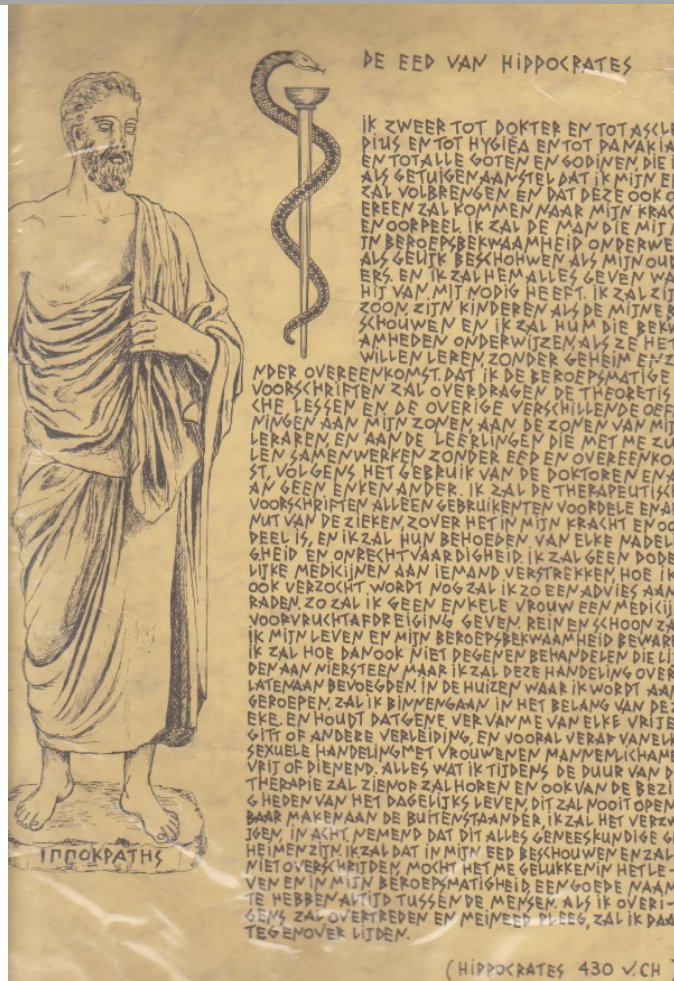 DE EED VAN HIPPOCRATES
IK ZWEER TOT DOKTER EN TOT ASCLE
PIUS EN TOT HYGIËA EN TOT PANAKIA
EN TOT ALLE GOTEN EN GODINEN, DIE I
ALS GETUIGEN AANSTEL DAT IK MIJN E
ZAL VOLBRENGEN EN DAT DEZE OOK O
EREEN ZAL KOMMEN NAAR MIJN KRAC
EN OORPEEL. IK ZAL DE MAN DIE MIJ M
JN BEROEPSBEKWAAMHEID ONDERWE
ALS GELIJK BESCHOHWEN ALS MIJN OUD
ERS. EN IK ZAL HEM ALLES GEVEN WA
HIJ VAN MIJ NODIG HEEFT. IK ZAL ZIJ
ZOON, ZIJN KINDEREN ALS DE MIJNE B
SCHOUWEN EN IK ZAL HUM DIE BEKW
AMHEDEN ONDERWIJZEN, ALS ZE HET
WILLEN LEREN, ZONDER GEHEIM EN Z
NDER OVEREENKOMST. DAT IK DE BEROEPSMATIGE
VOORSCHRIFTEN ZAL OVERDRAGEN DE THEORETIS
CHE LESSEN EN DE OVERIGE VERSCHILLENDE OEFF
NINGEN AAN MIJN ZONEN, AAN DE ZONEN VAN MIJ
LERAREN, EN AAN DE LEERLINGEN DIE MET ME ZU
LEN SAMENWERKEN ZONDER EED EN OVEREENKO
ST, VOLGENS HET GEBRUIK VAN DE DOKTOREN EN A
AN GEEN ENKEN ANDER. IK ZAL DE THERAPEUTISC
VOORSCHRIFTEN ALLEEN GEBRUIKEN TEN VOORDELE EN AF
NUT VAN DE ZIEKEN, ZOVER HET IN MIJN KRACHT EN OO
DEEL IS, EN IK ZAL HUN BEHOEDEN VAN ELKE NADELI
GHEID EN ONRECHTVAARDIGHEID. IK ZAL GEEN DODE
LIJKE MEDICIJNEN AAN IEMAND VERSTREKKEN, HOE IK
OOK VERZOCHT WORDT NOG ZAL IK ZO EEN ADVIES AAN
RADEN. ZO ZAL IK GEEN ENKELE VROUW EEN MEDICIJ
VOORVRUCHTAFDREIGING GEVEN. REIN EN SCHOON ZA
IK MIJN LEVEN EN MIJN BEROEPSBEKWAAMHEID BEWARE
IK ZAL HOE DAN OOK NIET DEGENEN BEHANDELEN DIE LIJ
DEN AAN NIERSTEEN MAAR IK ZAL DEZE HANDELING OVER
LATEN AAN BEVOEGDEN. IN DE HUIZEN WAAR IK WORDT AAN
GEROEPEN, ZAL IK BINNENGAAN IN HET BELANG VAN DE Z
EKE. EN HOUDT DATGENE VER VAN ME VAN ELKE VRIJE
GITT OF ANDERE VERLEIDING, EN VOORAL VERAF VAN ELK
SEXUELE HANDELING MET VROUWEN EN MANNEN LICHAME
VRIJ OF DIENEND. ALLES WAT IK TIJDENS DE DUUR VAN D
THERAPIE ZAL ZIEN OF ZAL HOREN EN OOK VAN DE BEZI
GHEDEN VAN HET DAGELIJKS LEVEN, DIT ZAL NOOIT OPEN
BAAR MAKEN AAN DE BUITENSTAANDER, IK ZAL HET VERZW
IJGEN, IN ACHT NEMEND DAT DIT ALLES GENEESKUNDIGE G
HEIMEN ZIJN. IK ZAL DAT IN MIJN EED BESCHOUWEN EN ZAL
NIET OVERSCHRIJDEN, MOCHT HET ME GELUKKEN IN HET LE-
VEN EN IN MIJN BEROEPSMATIGHEID, EEN GOEDE NAAM
TE HEBBEN ALTIJD TUSSEN DE MENSEN. ALS IK OVERI-
GENS ZAL OVERTREDEN EN MEINEED PLEEG, ZAL IK DAA
TEGENOVER LIJDEN.
(HIPPOCRATES 430 V.CH)
ΙΠΠΟΚΡΑΤΗΣ